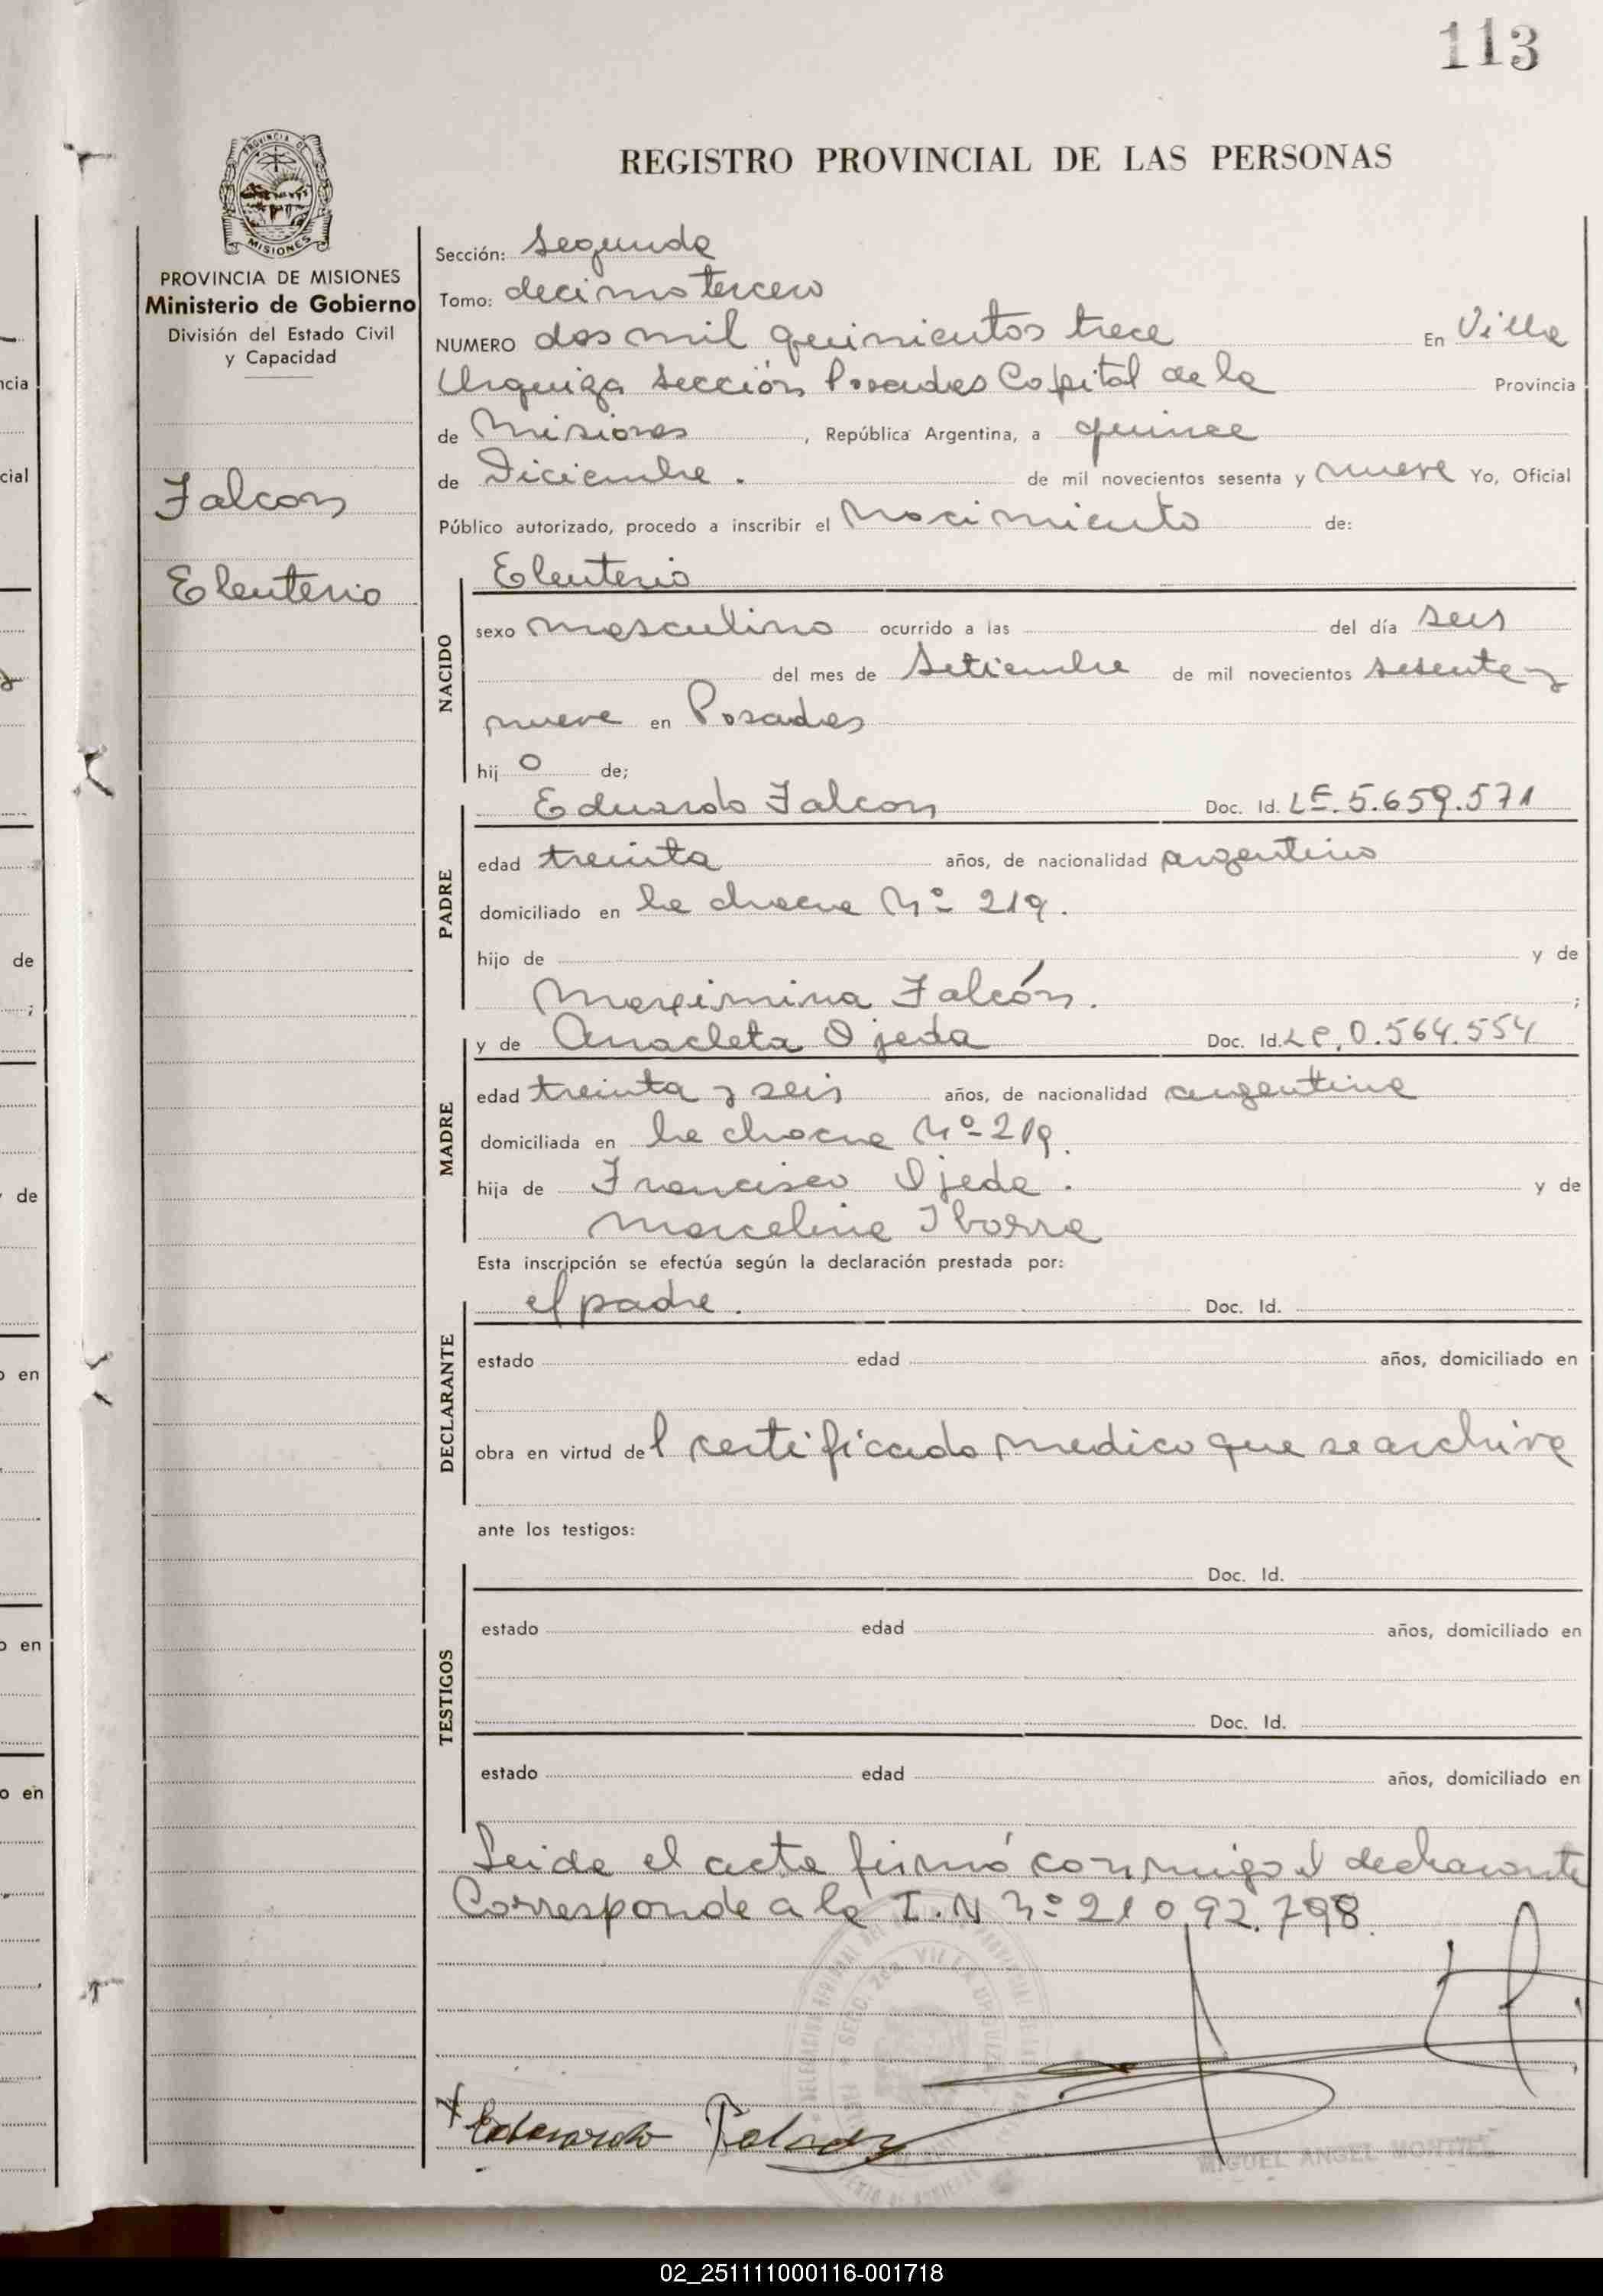 113
REGISTRO PROVINCIAL DE LAS PERSONAS
PROVINCIA DE MISIONES
Ministerio de Gobierno
División del Estado Civil
y Capacidad
Falcon
Eleuterio
Sección: Segunda
Tomo: decimo tercero
NUMERO dos mil quinientos trece En Villa
Urquiza Sección Posadas Capital de la Provincia
de Misiones, República Argentina, a quince
de Diciembre. de mil novecientos sesenta y nueve Yo, Oficial
Público autorizado, procedo a inscribir el Nacimiento de:
NACIDO
Eleuterio
sexo masculino ocurrido a las del día seis
del mes de Setiembre de mil novecientos sesenta y
nueve en Posadas
hijo de;
PADRE
Eduardo Falcon Doc. Id. LE. 5.659.571
edad treinta años, de nacionalidad argentino
domiciliado en La chacra Nº 219.
hijo de y de
Maximina Falcón. ;
MADRE
y de Anacleta Ojeda Doc. Id. LC. 0.564.554
edad treinta y seis años, de nacionalidad argentina
domiciliada en La chacra Nº 219.
hija de Francisco Ojeda. y de
Marcelina Iborra
Esta inscripción se efectúa según la declaración prestada por:
DECLARANTE
el padre. Doc. Id.
estado edad años, domiciliado en
obra en virtud del certificado medico que se archiva
ante los testigos:
TESTIGOS
Doc. Id.
estado edad años, domiciliado en
Doc. Id.
estado edad años, domiciliado en
Leida el acta firmó conmigo el declarante
Corresponde a la I.N nº 21092.798.
Eduardo Falcon
MIGUEL ANGEL MONTIEL
02_251111000116-001718